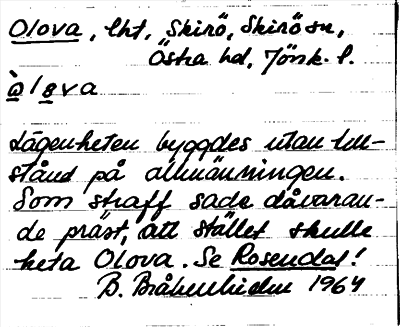 Olova, lht, Skirö, Skirö sn,
Östra hd, Jönk. l.
ò̱lo̱va
Lägenheten byggdes utan till-
stånd på allmänningen.
Som straff sade dåvaran-
de präst, att stället skulle
heta Olova. Se Rosendal!
B. 1964